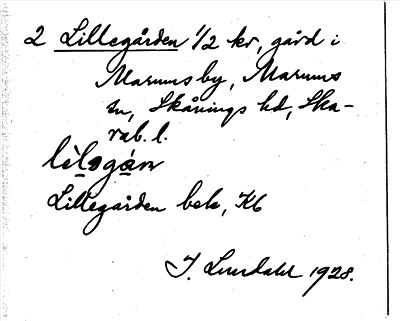 2 Lillegården 1/2 kr, gård i
Marums by, Marums
sn, Skånings hd, Ska-
rab. l.
lìləgán
Lillegården bek, Kb
J. Lundahl 1928.